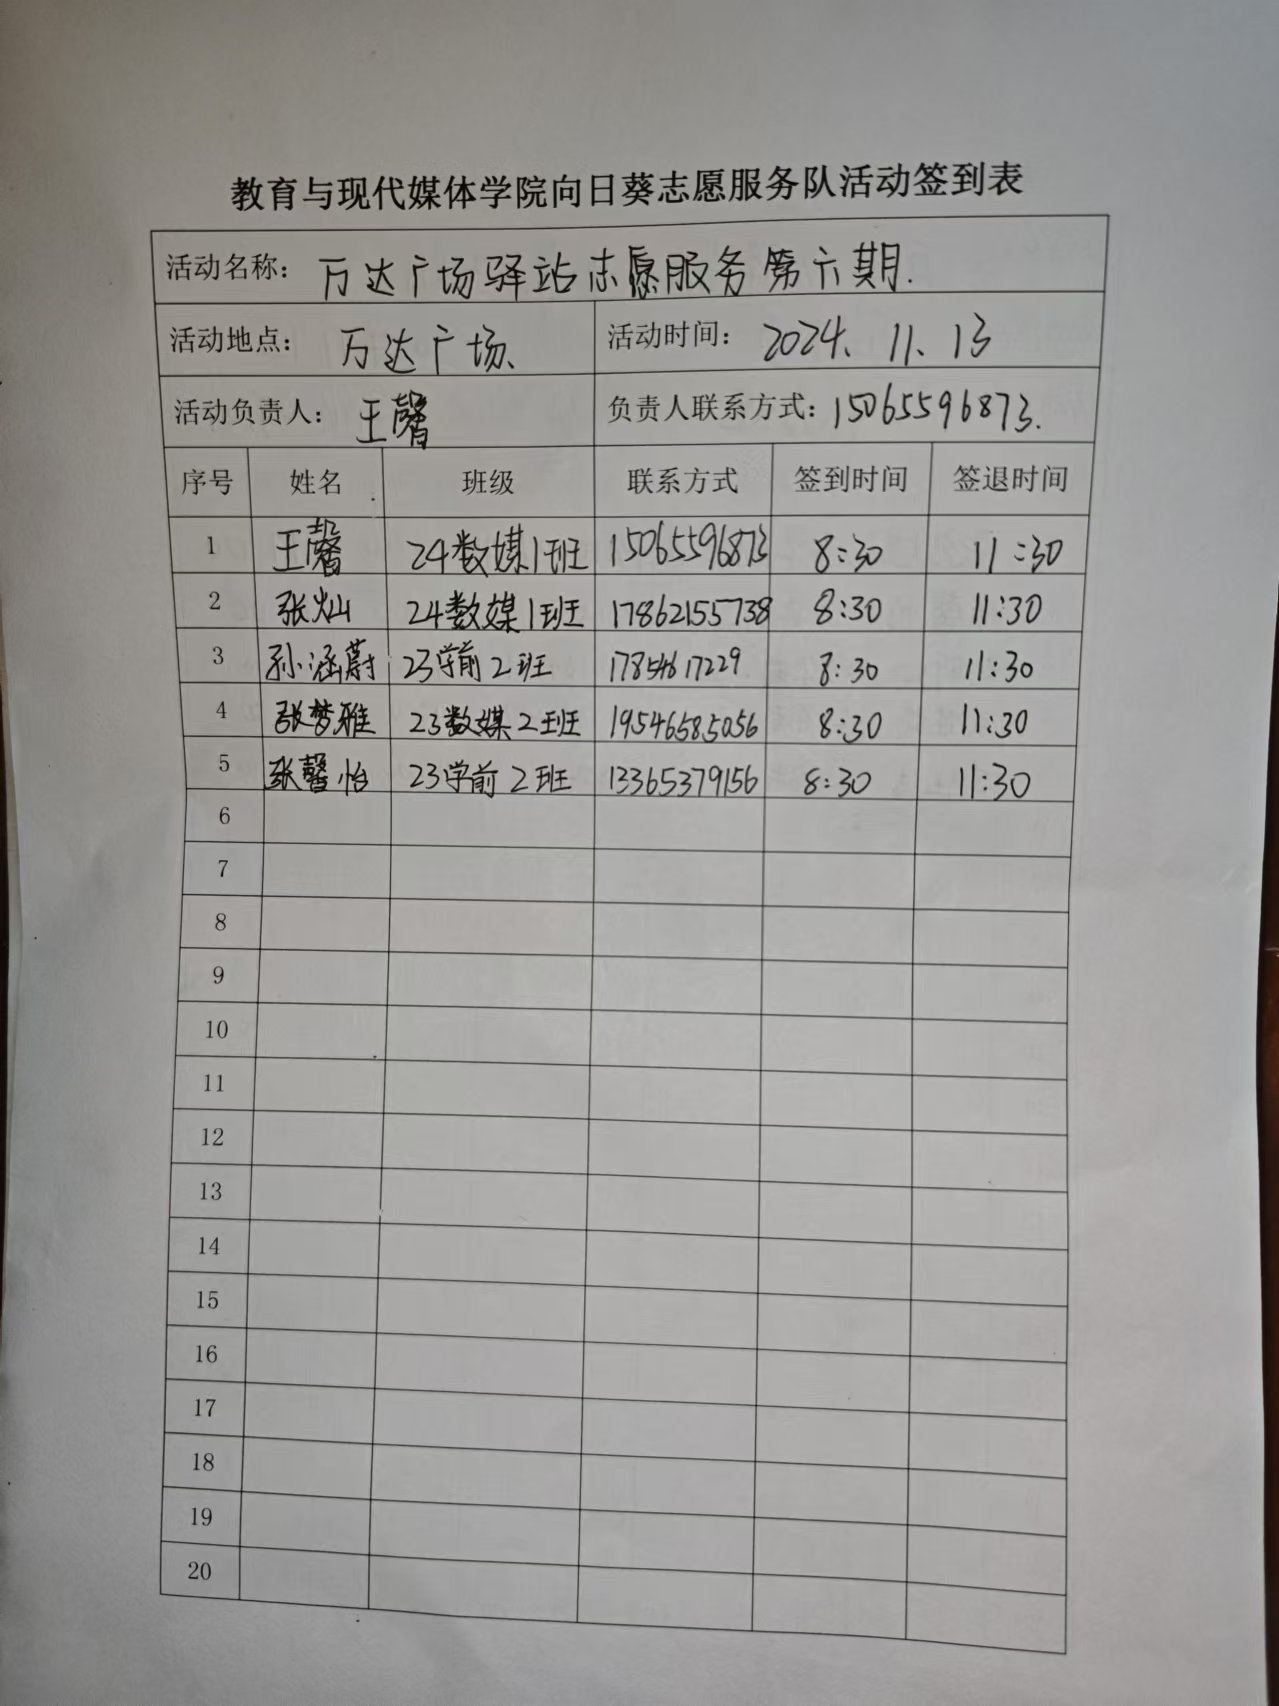 教育与现代媒体学院向日葵志愿服务队活动签到表
活动名称: 万达广场驿站志愿服务第六期.
活动地点: 万达广场、 活动时间: 2024、11、13
活动负责人: 王馨 负责人联系方式: 15065596873.
序号 姓名 班级 联系方式 签到时间 签退时间
1 王馨 24数媒1班 15065596873 8:30 11:30
2 张灿 24数媒1班 17862155738 8:30 11:30
3 孙涵蔚 23学前2班 8:30 11:30
4 张梦雅 23数媒2班 19546585056 8:30 11:30
5 张馨怡 23学前2班 13365379156 8:30 11:30
6
7
8
9
10
11
12
13
14
15
16
17
18
19
20